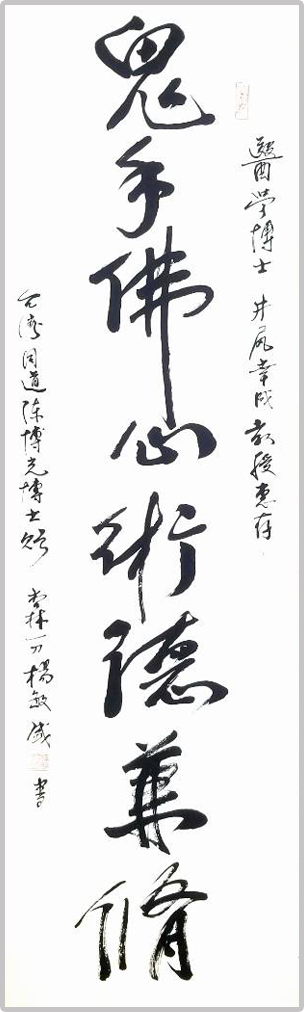 醫學博士 井尻幸成教授惠存
鬼手佛心術德兼修
台灣同道陳博光博士贈 杏林一刀楊敏盛書